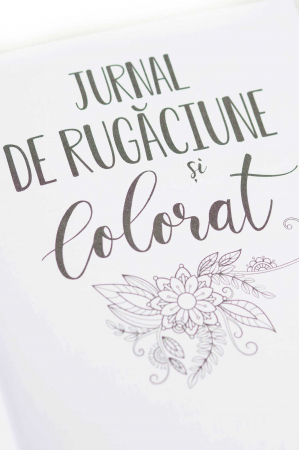 JURNAL
DE RUGĂCIUNE
și
Colorat